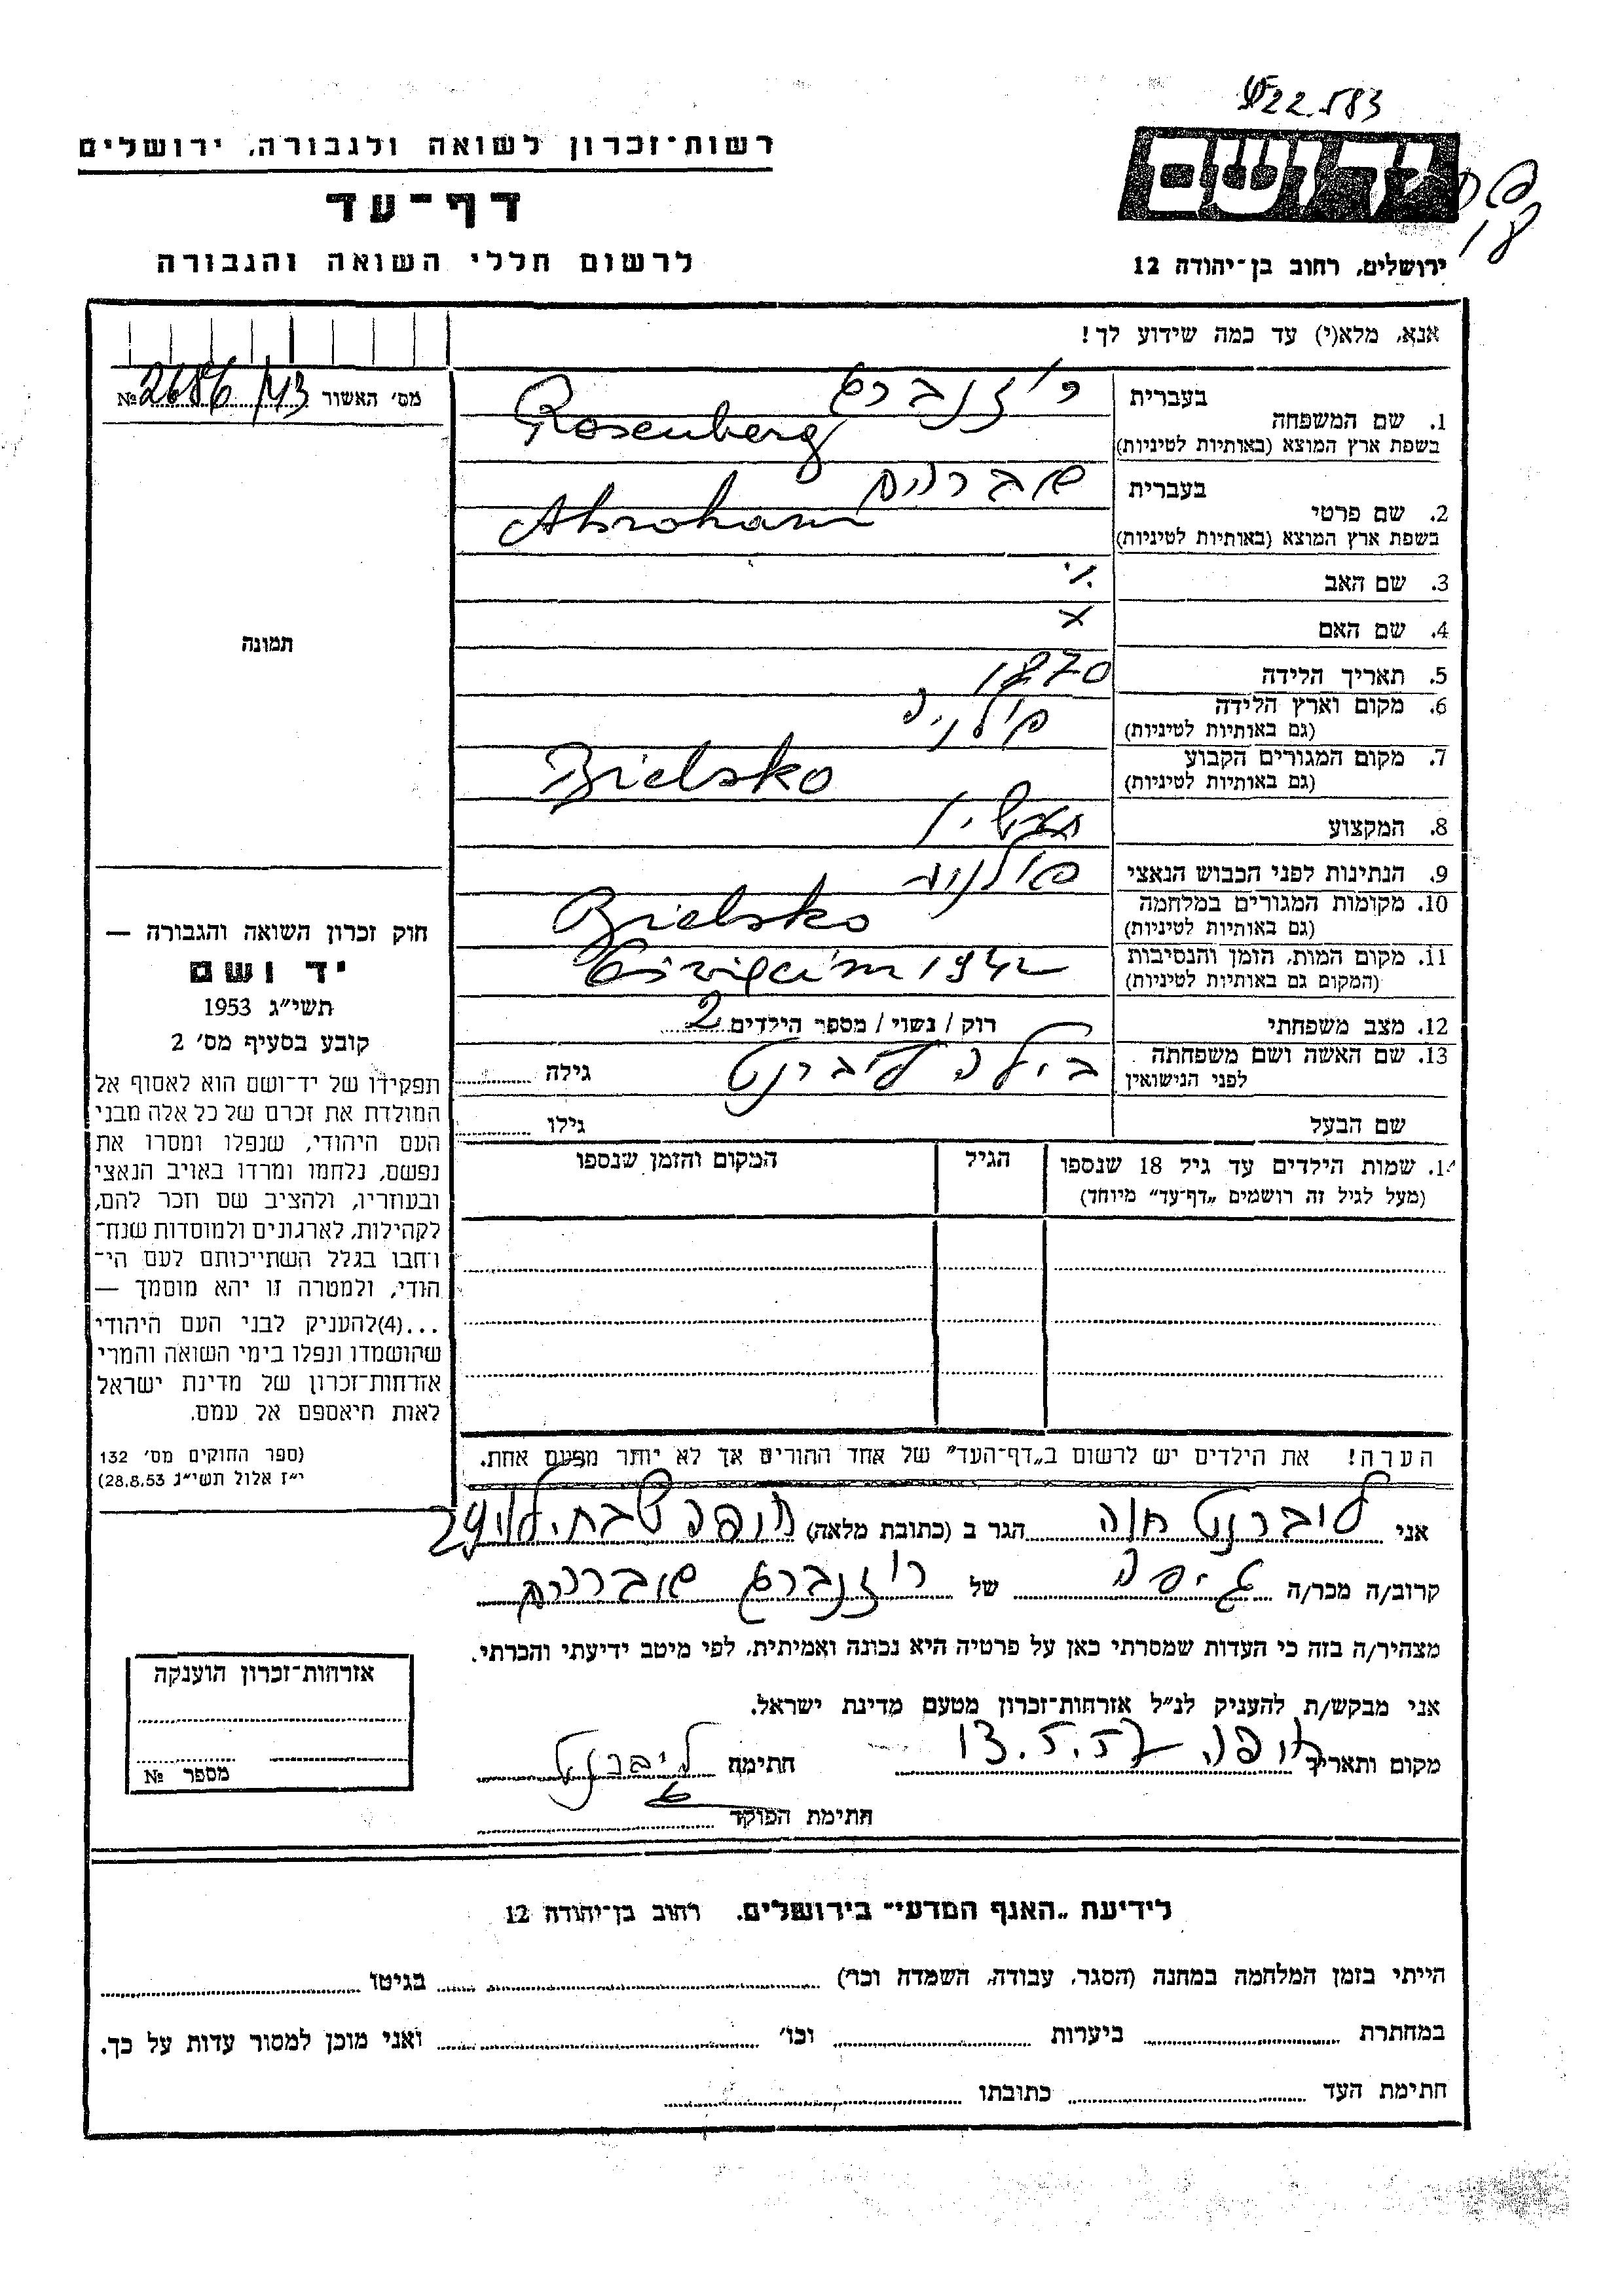 22.583
רשות-זכרון לשואה ולגבורה, ירושלים
דף-עד
לרשום חללי השואה והגבורה
יד ושם
ירושלים, רחוב בן-יהודה 12
אנא, מלא(י) עד כמה שידוע לך!
מס' האשור 2686/413 №
תמונה
בעברית רוזנברג
1. שם המשפחה
בשפת ארץ המוצא (באותיות לטיניות) Rosenberg
בעברית אברהם
2. שם פרטי
בשפת ארץ המוצא (באותיות לטיניות) Abraham
3. שם האב
4. שם האם
5. תאריך הלידה 1870
6. מקום וארץ הלידה פולניה
(גם באותיות לטיניות)
7. מקום המגורים הקבוע Bielsko
(גם באותיות לטיניות)
8. המקצוע
9. הנתינות לפני הכבוש הנאצי
10. מקומות המגורים במלחמה Bielsko
(גם באותיות לטיניות)
11. מקום המות, הזמן והנסיבות 1942
(המקום גם באותיות לטיניות)
12. מצב משפחתי רוק / נשוי / מספר הילדים 2
13. שם האשה ושם משפחתה
לפני הנישואין גילה
שם הבעל גילו
14. שמות הילדים עד גיל 18 שנספו הגיל המקום והזמן שנספו
(מעל לגיל זה רושמים „דף-עד" מיוחד)
הערה! את הילדים יש לרשום ב„דף-העד" של אחד ההורים אך לא יותר מפעם אחת.
חוק זכרון השואה והגבורה —
יד ושם
תשי"ג 1953
קובע בסעיף מס' 2
תפקידו של יד-ושם הוא לאסוף אל
המולדת את זכרם של כל אלה מבני
העם היהודי, שנפלו ומסרו את
נפשם, נלחמו ומרדו באויב הנאצי
ובעוזריו, ולהציב שם וזכר להם,
לקהילות, לארגונים ולמוסדות שנח-
רחבו בגלל השתייכותם לעם הי-
הודי, ולמטרה זו יהא מוסמך —
...(4)להעניק לבני העם היהודי
שהושמדו ונפלו בימי השואה והמרי
אזרחות-זכרון של מדינת ישראל
לאות היאספם אל עמם.
(ספר החוקים מס' 132
י"ז אלול תשי"ג 28.8.53)
אני ליברנט חוה הגר ב (כתובת מלאה) חיפה
קרוב/ה מכר/ה גיסה של רוזנברג אברהם
מצהיר/ה בזה כי העדות שמסרתי כאן על פרטיה היא נכונה ואמיתית, לפי מיטב ידיעתי והכרתי.
אני מבקש/ת להעניק לנ"ל אזרחות-זכרון מטעם מדינת ישראל.
מקום ותאריך חיפה 13.5.57 חתימה ליברנט
חתימת הפוקד
אזרחות-זכרון הוענקה
מספר №
לידיעת „האגף המדעי" בירושלים. רחוב בן-יהודה 12
הייתי בזמן המלחמה במחנה (הסגר, עבודה, השמדה וכו') בגיטו
במחתרת ביערות וכו' ואני מוכן למסור עדות על כך.
חתימת העד כתובתו